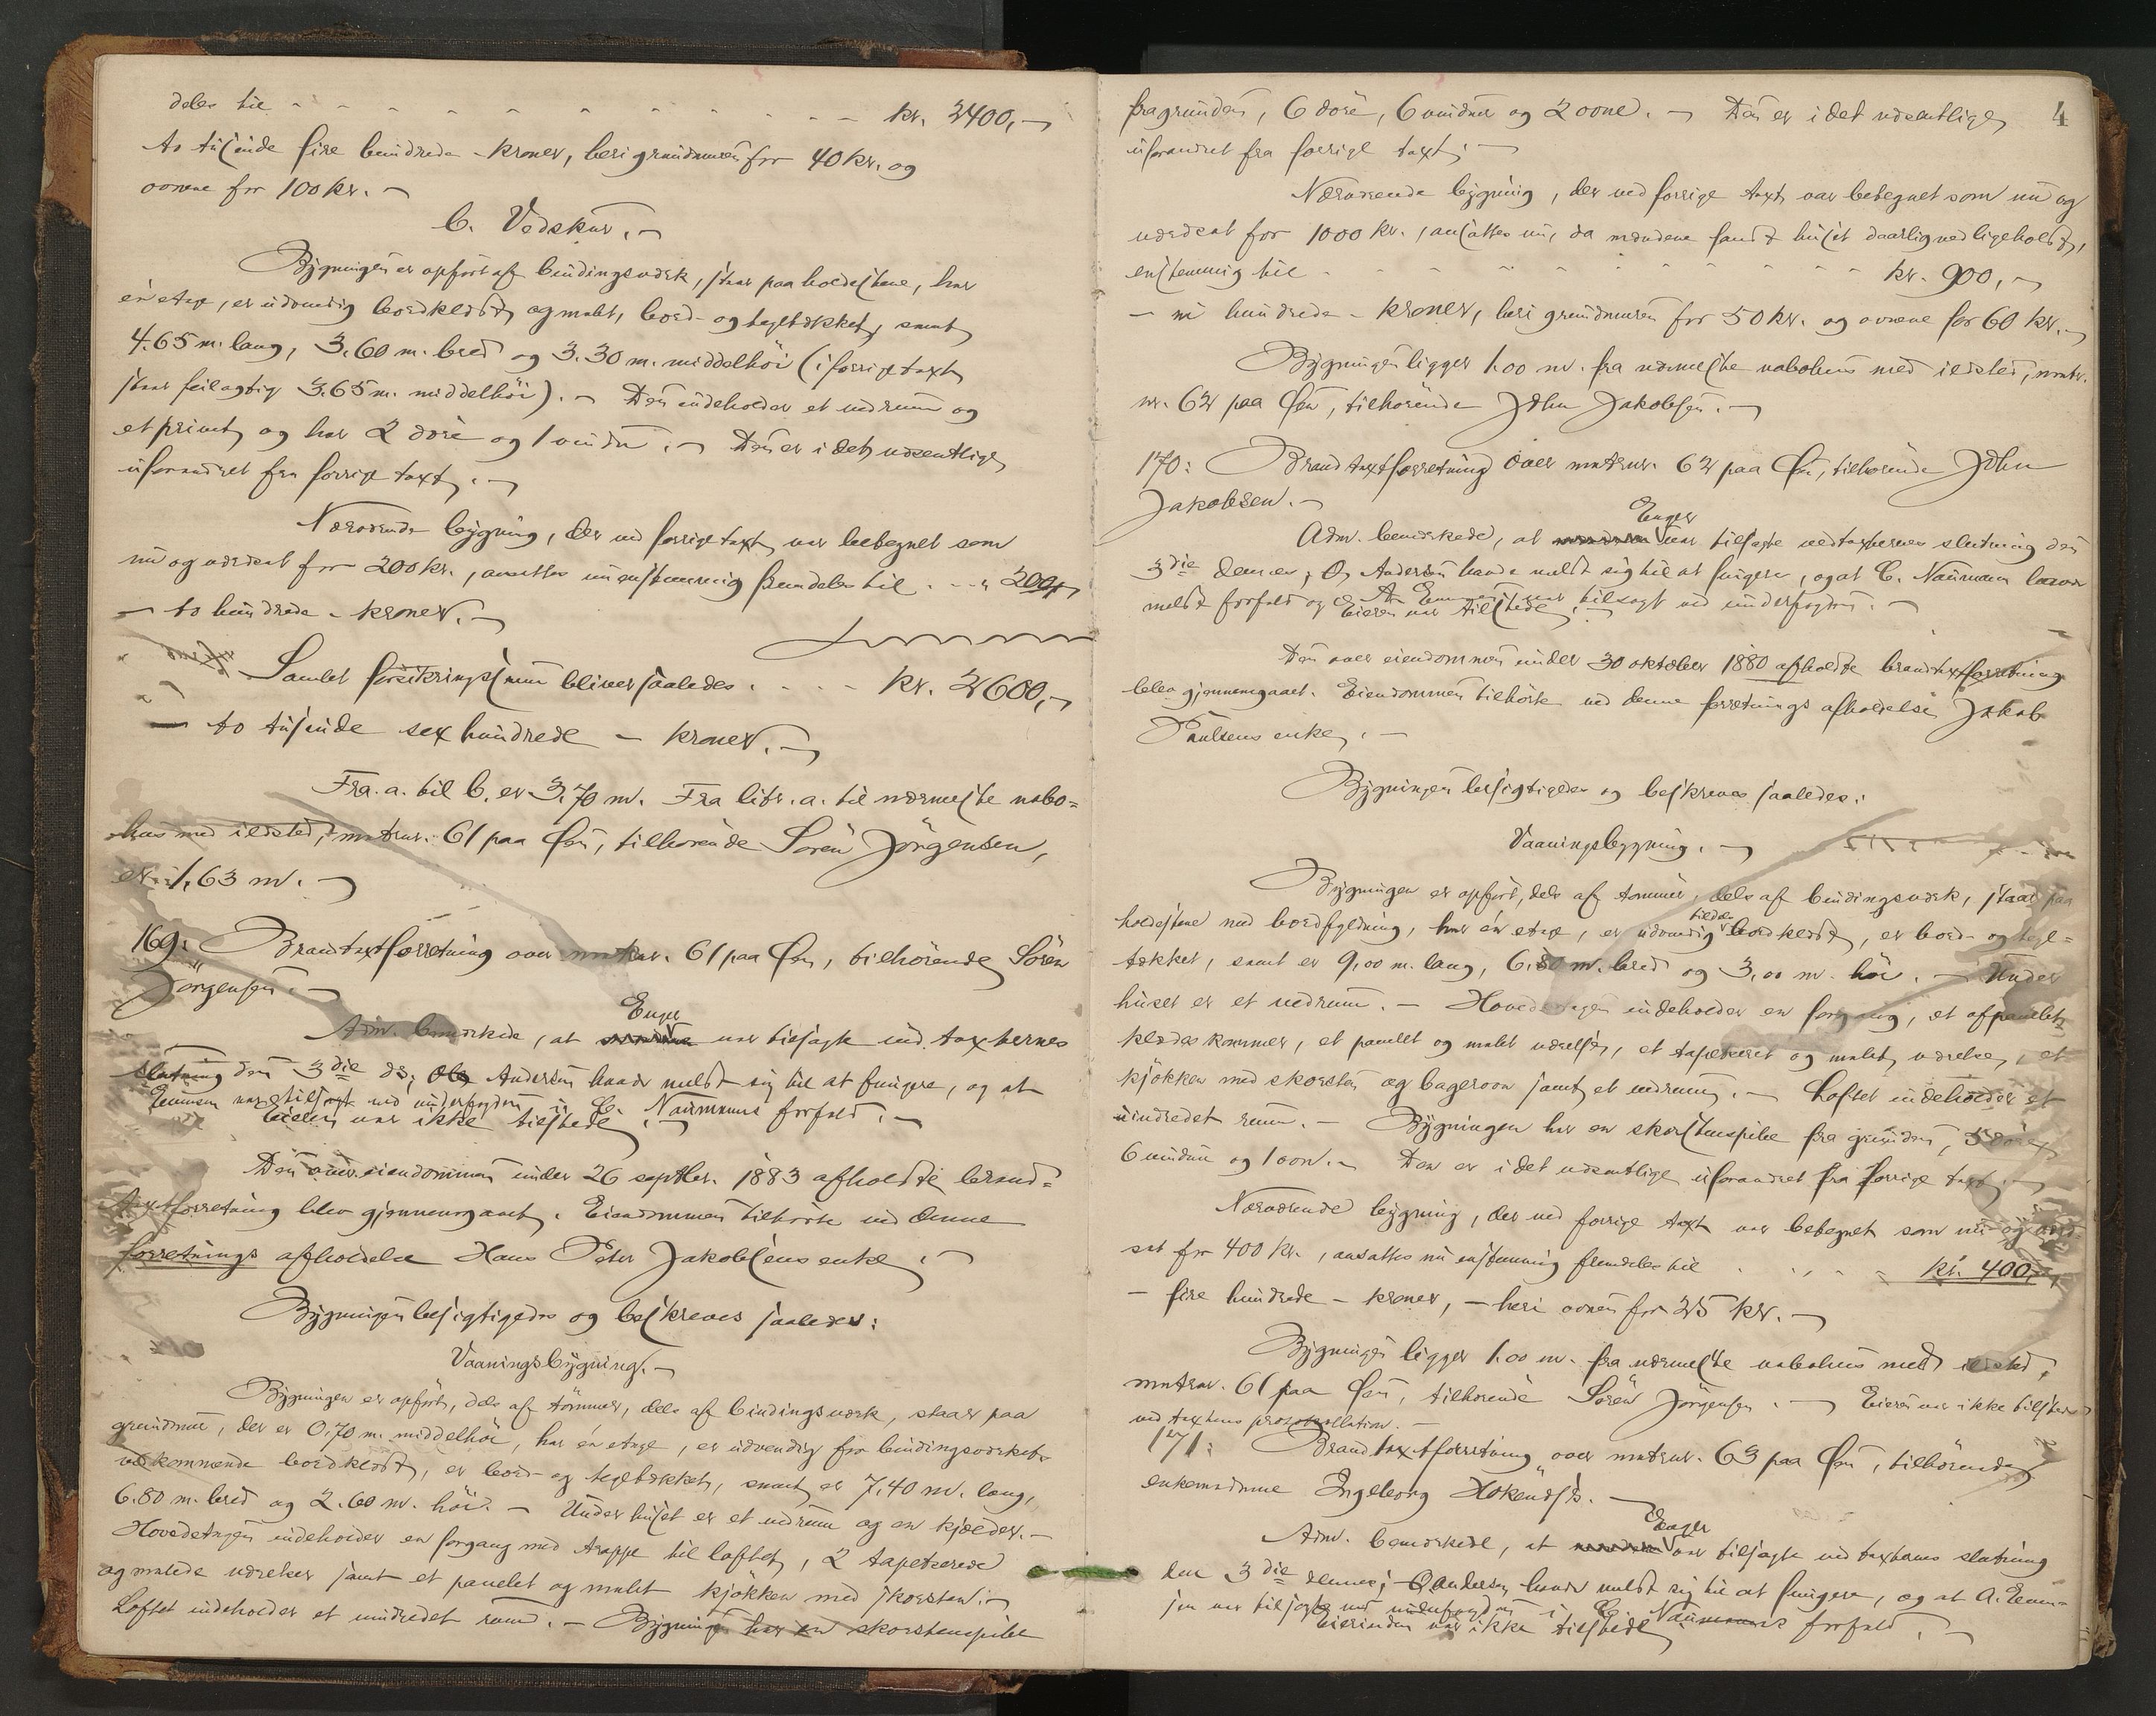 deles til - - - - - - - - - - kr. 2400,-
to tusinde fire hundrede - kroner, heri grundmuren for 40 kr. og
ovnene for 100 kr. -
b. Vedskur. -
Bygningen er opført af bindingsverk, staar paa holdestene, har
én etage, er udvendig bordklædt og malt, bord- og tegltækket, samt
4.65 m. lang, 3.60 m. bred og 3.30 m. middelhöi (i forrige taxt
staar feilagtig 3.65 m. middelhöi). - Den indeholder et vedrum og
et privet, og har 2 döre og 1 vindu. - Den er i det væsentlige
uforandret fra forrige taxt. -
Nærværende bygning, der ved forrige taxt var betegnet som
nu og værdsat for 200 kr., ansattes nu enstemmig fremdeles til - - " 200,-
- to hundrede - kroner. -
Samlet forsikringssum bliver saaledes. - - - kr. 2600,-
- to tusinde sex hundrede - kroner. -
Fra a. til b. er 3,70 m. Fra litr. a. til nærmeste nabo=
hus med ildsted, matrnr. 61 paa Øen, tilhörende Sören Jörgensen,
er 1,63 m. -
169: Brandtaxtforretning over matrnr. 61 paa Øen, tilhörende Sören
Jörgensen. -
Enger
Adm. bemærkede, at var tilsagte ved taxternes
slutning den 3die ds; Ole Andersen havde meldt sig til at fungere, og at
Eumsen var tilsagt ved underfogden i C. Naumanns forfald. -
Eieren var ikke tilstede. -
Den over eiendommen under 26 septbr. 1883 afholdte brand=
taxtforretning blev gjennemgaaet. Eiendommen tilhörte ved denne
forretnings afholdelse Hans Peter Jakobsens enke. -
Bygningen besigtigedes og beskreves saaledes:
Vaaningsbygning. -
Bygningen er opført, dels af tömmer, dels af bindingsverk, staar paa
grundmur, der er 0.70 m. middelhöi, har én etage, er udvendig for bindingsverkets
vedkommende bordklædt, er bord- og tegltækket, samt er 7,40 m. lang,
6.80 m. bred og 2.60 m. höi. - Under huset er et vedrum og en kjælder. -
Hovedetagen indeholder en forgang med trappe til loftet, 2 tapetserede
og malede værelser samt et panelet og malet kjökken med skorsten. -
Loftet indeholder et uindredet rum. - Bygningen har en skorstenspibe
4
fra grunden, 6 döre, 6 vinduer og 2 ovne. - Den er i det væsentlige
uforandret fra forrige taxt. -
Nærværende bygning, der ved forrige taxt var betegnet som nu og
værdsat for 1000 kr., ansattes nu, da mændene fandt huset daarlig vedligeholdt,
enstemmig til - - - - - - - - - kr. 900,-
- ni hundrede - kroner, heri grundmuren for 50 kr. og ovnene for 60 kr. -
Bygningen ligger 1.00 m. fra nærmeste nabohus med ildsted, matr.
nr. 62 paa Øen, tilhörende John Jakobsen. -
170: Brandtaxtforretning over matrnr. 62 paa Øen, tilhörende John
Jakobsen. -
Enger
Adm. bemærkede, at var tilsagte ved taxternes slutning den
3die dennes; O. Andersen havde meldt sig til at fungere, og at C. Naumann havde
meldt forfald og A. var tilsagt ved underfogden. -
Eieren var tilstede. -
Den over eiendommen under 30 oktober 1880 afholdte brandtaxtforretning
blev gjennemgaaet. Eiendommen tilhörte ved denne forretnings afholdelse Jakob
Paulsens enke. -
Bygningen besigtigedes og beskreves saaledes:
Vaaningsbygning. -
Bygningen er opført, dels af tömmer, dels af bindingsverk, staar paa
tildels
holdestene med bordfyldning, har én etage, er udvendig bordklædt, er bord- og tegl=
tækket, samt er 9,00 m. lang, 6.80 m. bred og 3,00 m. höi. - Under
huset er et vedrum. - Hovedetagen indeholder en forgang, et afpanelet
klædeskammer, et panelet og malet værelse, et tapetseret og malet værelse, et
kjökken med skorsten og bagerovn samt et vedrum. - Loftet indeholder et
uindredet rum. - Bygningen har en skorstenspibe fra grunden, 5 döre,
6 vinduer og 1 ovn. - Den er i det væsentlige uforandret fra forrige taxt. -
Nærværende bygning, der ved forrige taxt var betegnet som nu og værd=
sat for 400 kr., ansattes nu enstemmig fremdeles til - - - - kr. 400,-
- fire hundrede - kroner, - heri ovnen for 25 kr. -
Bygningen ligger 1.00 m. fra nærmeste nabohus med ildsted,
matrnr. 61 paa Øen, tilhörende Sören Jörgensen. - Eieren var ikke tilstede
ved taxtens protokollation. -
171: Brandtaxtforretning over matrnr. 63 paa Øen, tilhörende
enkemadame Ingeborg -
Enger
Adm. bemærkede, at var tilsagte ved taxtens slutning
den 3die dennes; O. Andersen havde meldt sig til at fungere, og at A. Eum-
sen var tilsagt ved underfogden i C. Naumanns forfald. -
Eierinden var ikke tilstede